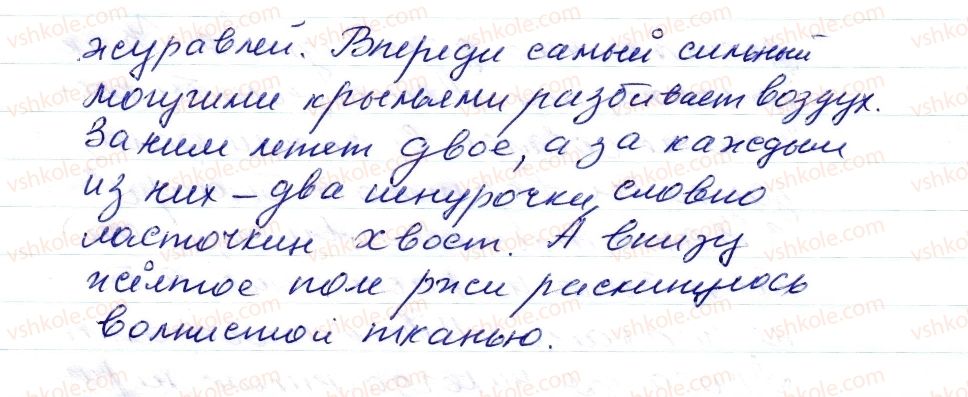 журавлей. Впереди самый сильный
могучими крыльями разбивает воздух.
За ним летят двое, а за каждым
из них – два шнурочки, словно
ласточкин хвост. А внизу
жёлтое поле ржи раскинулось
волнистой тканью.